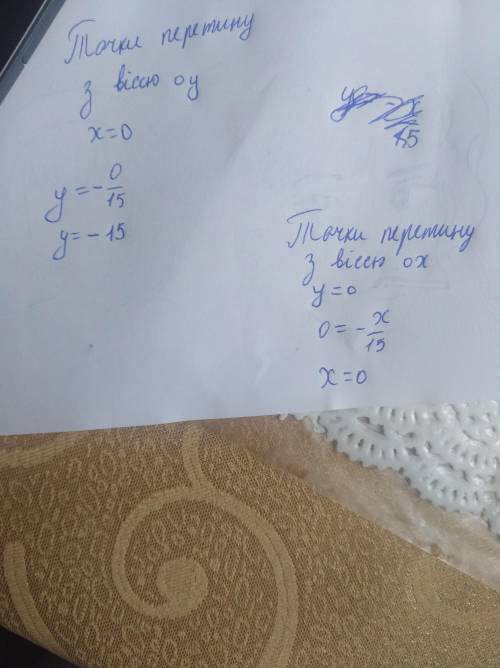 Точки перетину
з віссю oy
x=0
y = - 0/15
y = - 15
Точки перетину
з віссю ox
y=0
0 = - x/15
x=0